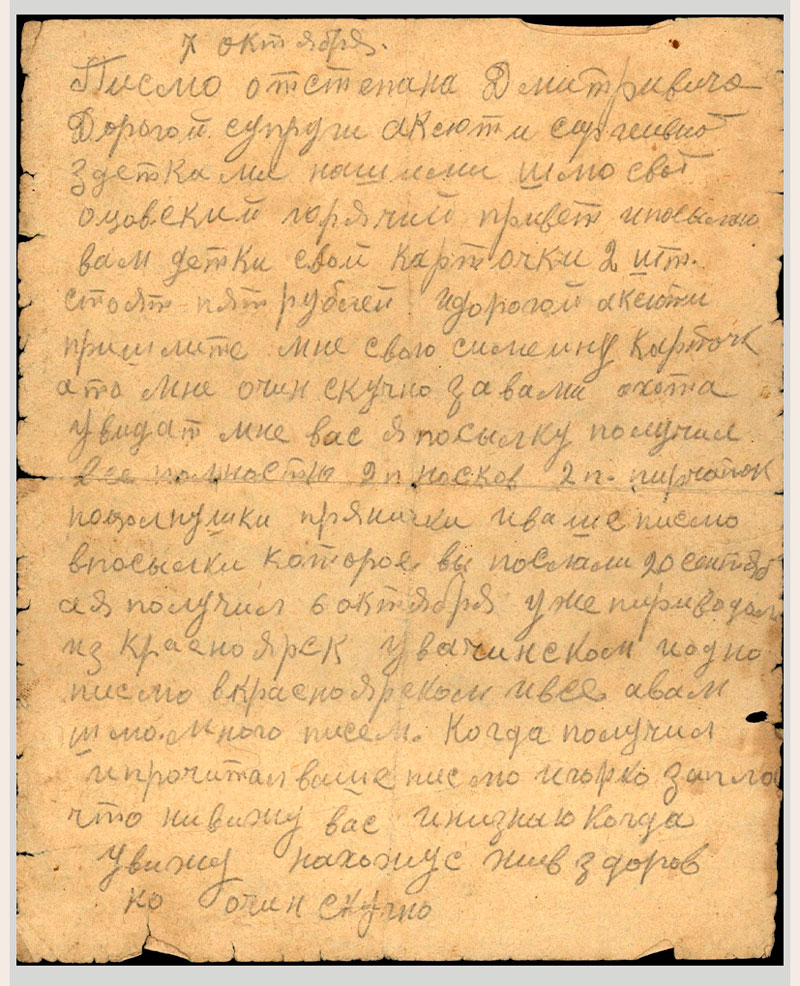 7 октября.
Писмо отстепана Дмитривича
Дорогой супруги аксюти
здетками нашими шлю свой
оцовский горячий привет ипосылаю
вам детки свои карточки 2 шт.
стоят пят рублей идорогой аксюти
пришлите мне свою симейну карточк
ато мне очин скучно завами охота
увидат мне вас я посылку получил
все полностю 2 п носков 2 п. пирчаток
прянички иваше писмо
впосылки которое вы послали 20 сентяб
ая получил 6 октября уже
из Красноярск увачинском иодно
писмо вкрасноярском ивсе авам
шлю много писем. Когда получил
ипрочитал ваше писмо игорко запла
что нивижу вас инизнаю когда
увижу нахожус жив здоров
но очин скучно